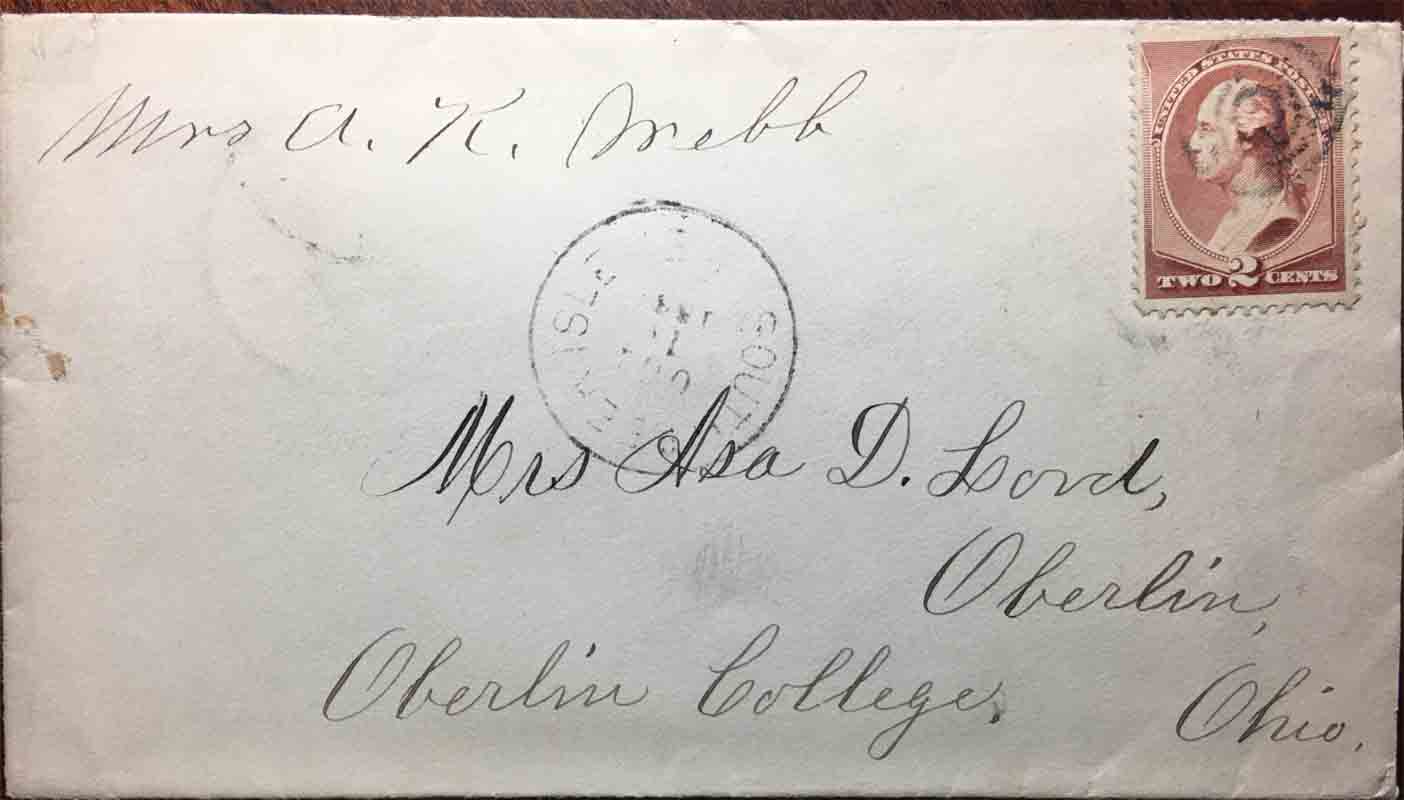 Mrs A. K. Webb
UNITED STATES POSTAGE
TWO 2 CENTS
Mrs Asa D. Lord,
Oberlin,
Oberlin College.
Ohio.